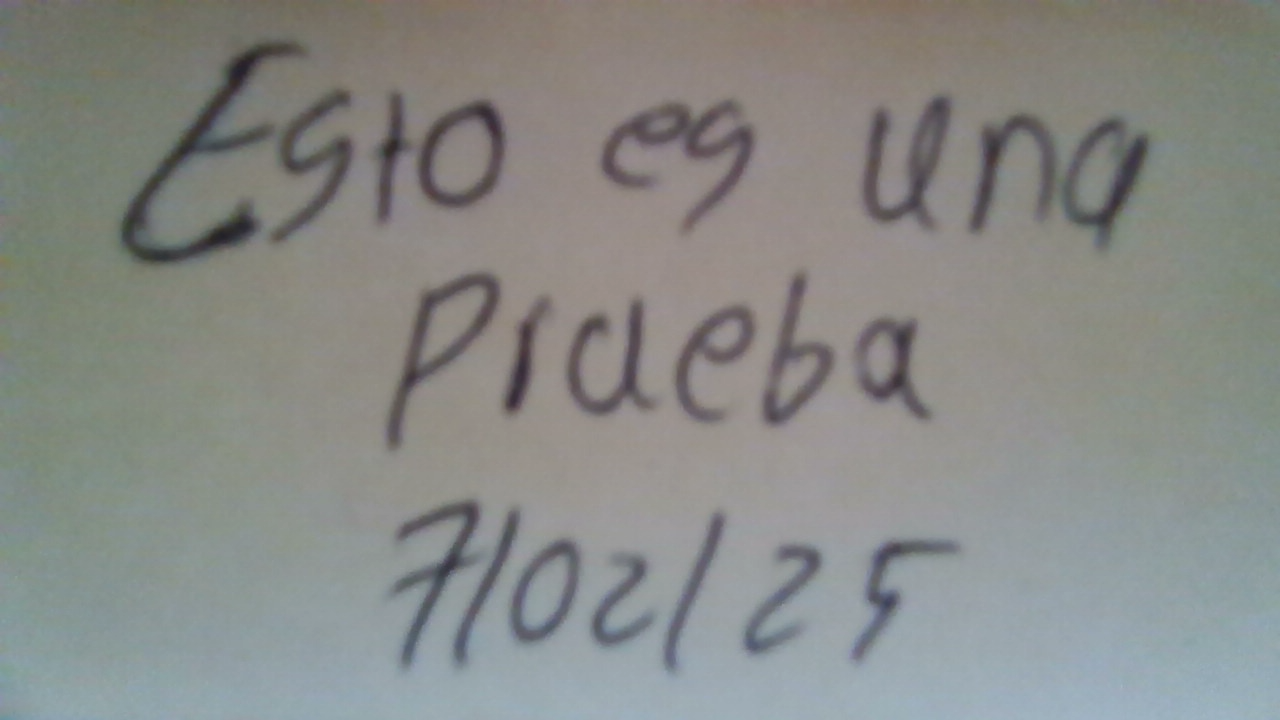 Esto es una
Prueba
7/02/25